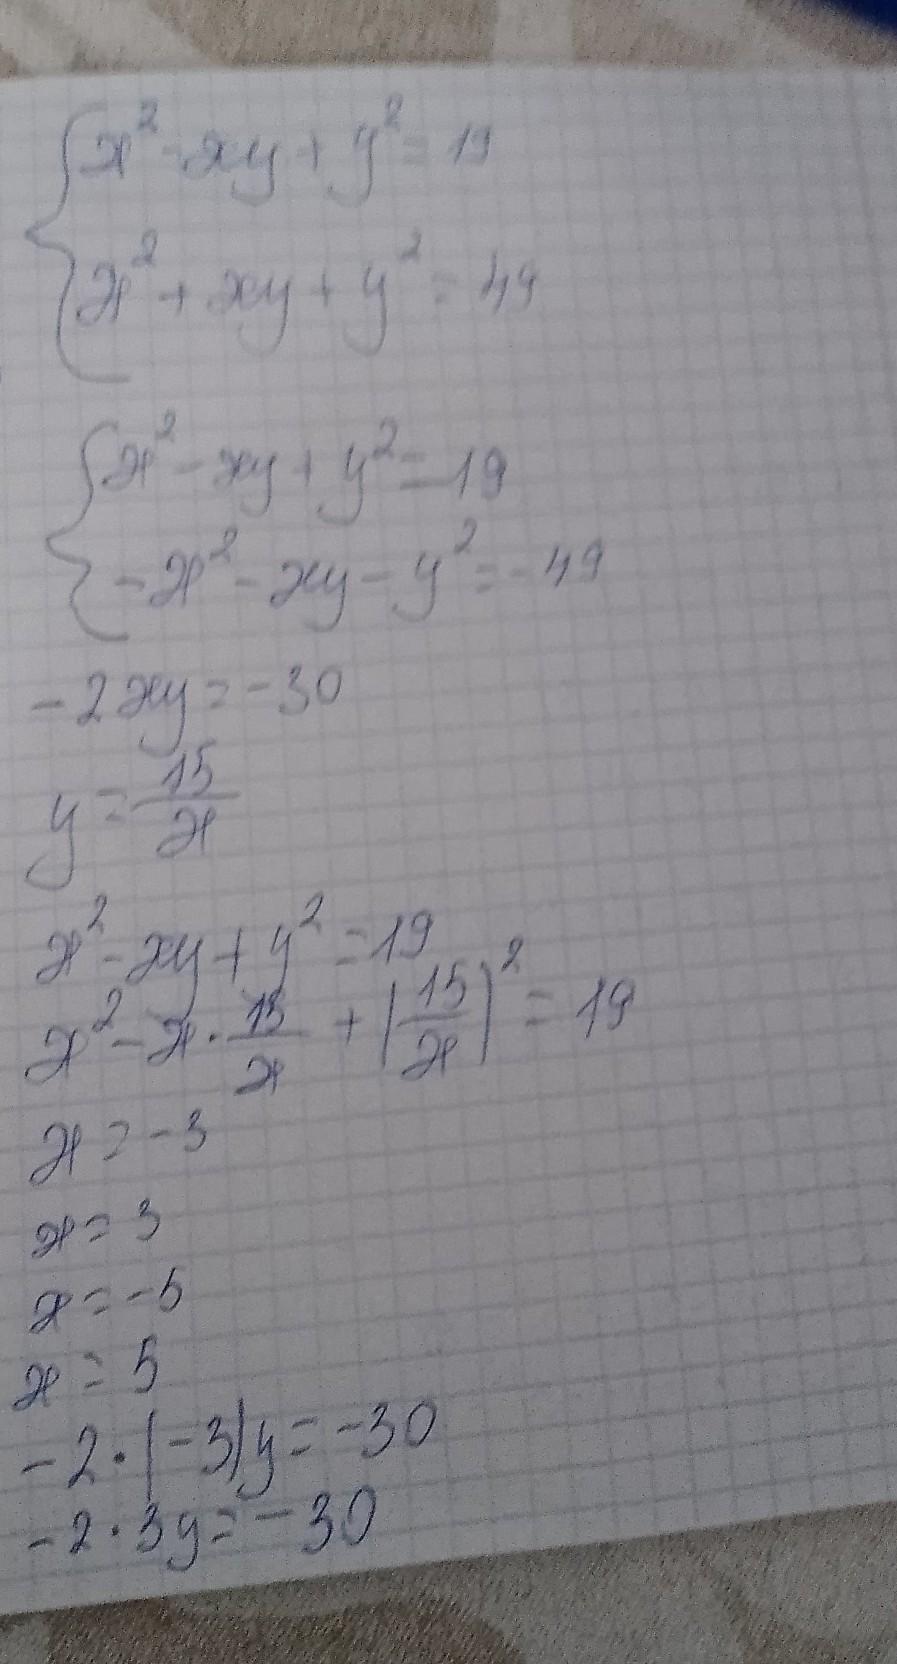 x² - xy + y² = 19
x² + xy + y² = 49
x² - xy + y² = 19
-x² - xy - y² = -49
-2xy = -30
y = 15/x
x² - xy + y² = 19
x² - x · 15/x + (15/x)² = 19
x = -3
x = 3
x = -5
x = 5
-2 · (-3)y = -30
-2 · 3y = -30